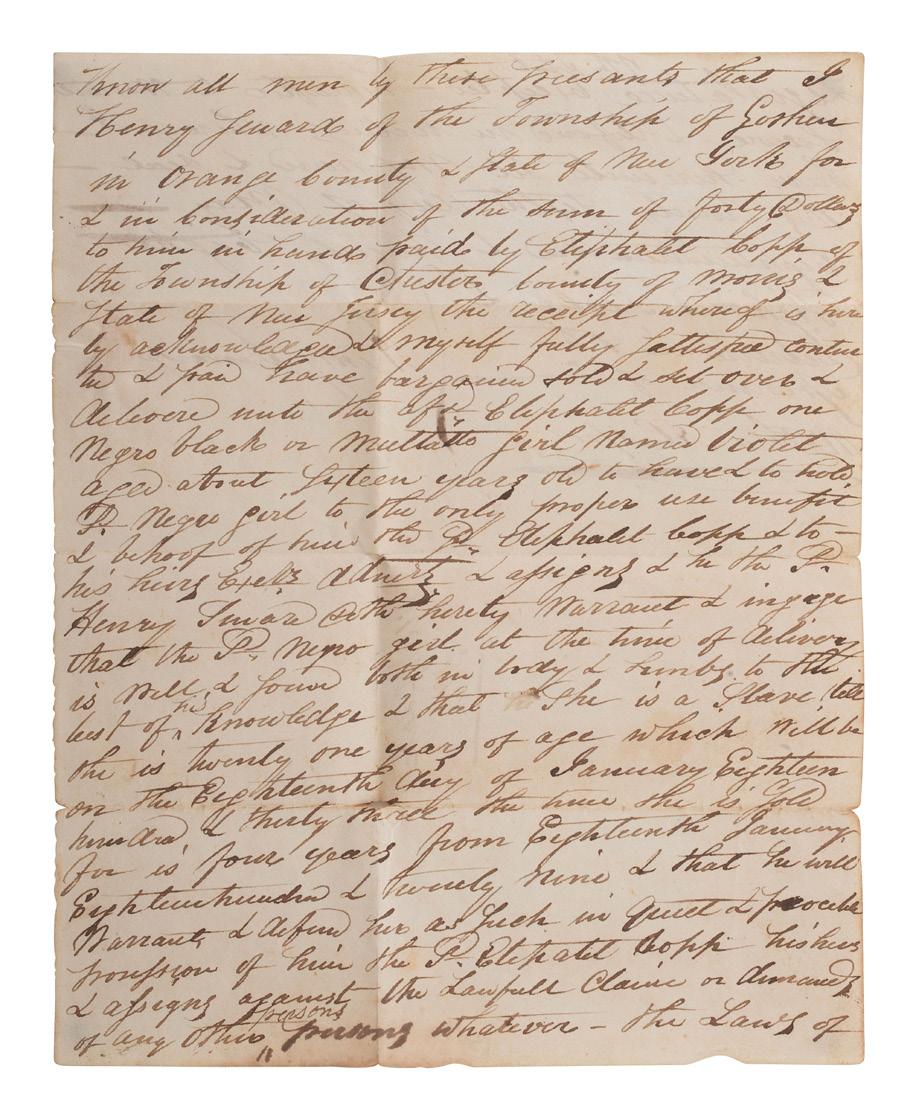 Know all men by these presants that I
Henry Seward of the Township of Goshen
in Orange County & State of New York for
& in Consideration of the sum of forty Dollars
to him in hand paid by Eliphalet Copp of
the Township of Chester County of Morris &
State of New Jersey the receipt whereof is here
by acknowledged & myself fully sattesfied conten
ted & paid have bargained sold & set over &
delivered unto the afsd Eliphalet Copp one
Negro black or Mullatto Girl Named Violet
aged about Sixteen years old to have & to hold
sd. Negro girl to the only proper use benefit
& behoof of him the sd. Eliphalet Copp & to
his heirs Exets. Admets. & assigns & he the sd.
Henry Seward doth hereby Warrant & ingage
that the sd. Negro girl at the time of delivery
is well & sound both in body & limbs to the
best of his Knowledge & that She is a Slave till
she is twenty one years of age which will be
on the Eighteenth day of January Eighteen
hundrd & thirty three the time she is Sold
for is four years from Eighteenth January
Eighteenhundrd & twenty Nine & that he will
Warrant & defend her as Such in Quiet & peaceble
possession of him the sd. Eliphalet Copp his heirs
& assigns against the Lawfull Claime or demands
of any other persons persons whatever - the Laws of